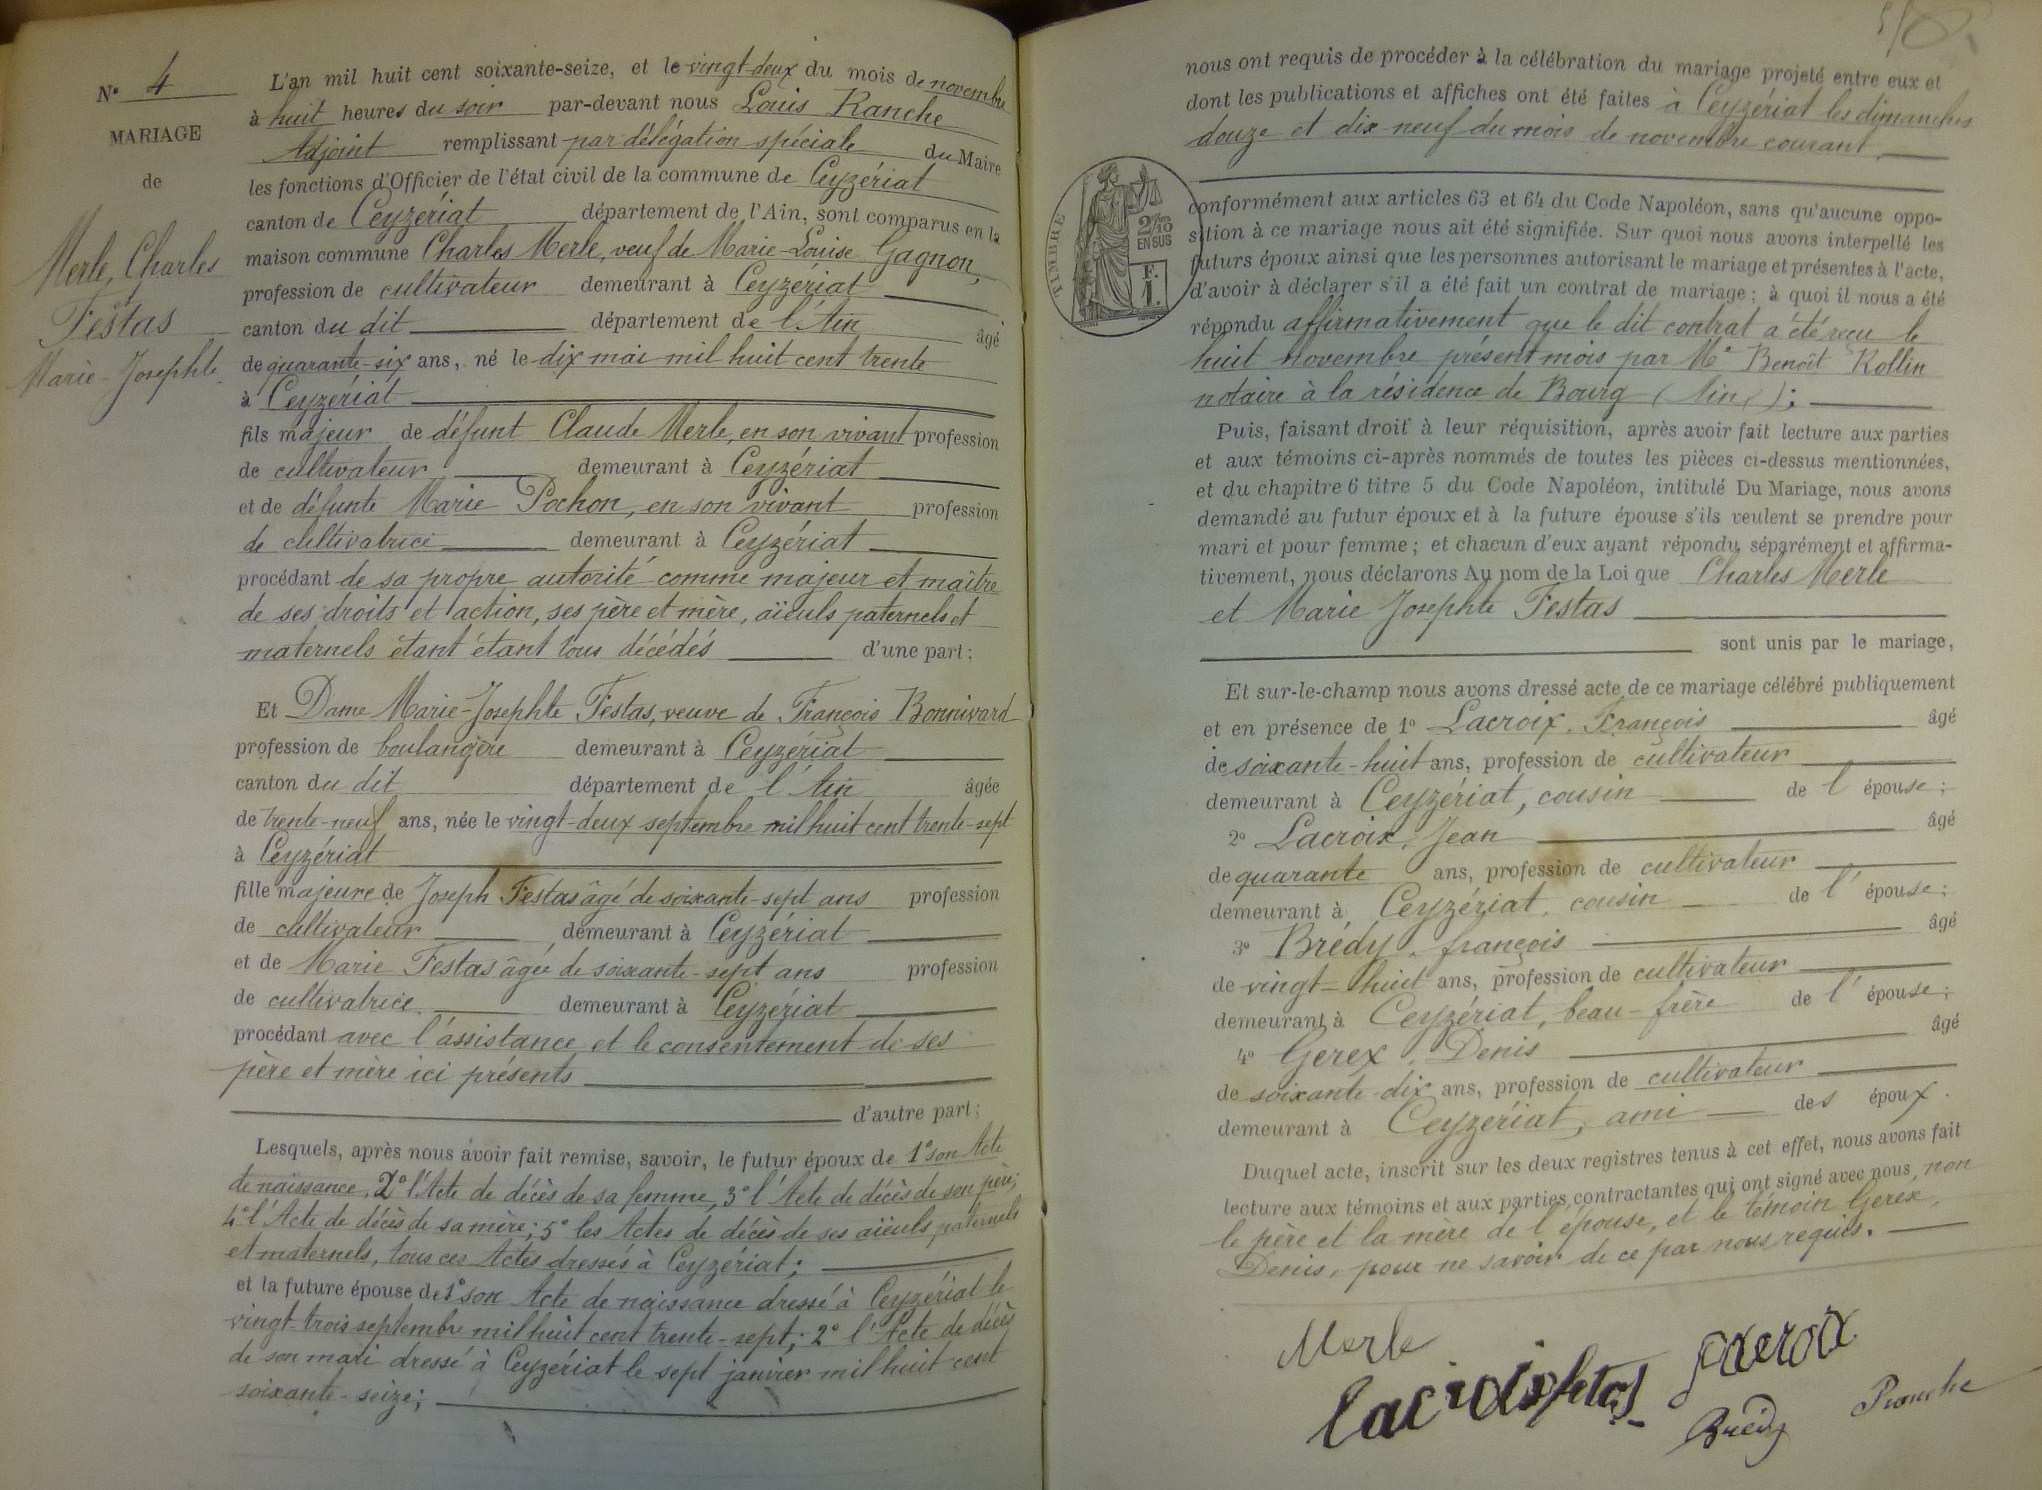 N° 4
MARIAGE
de
Merle, Charles
et
Festas
Marie-Josephte
L'an mil huit cent soixante-seize, et le vingt-deux du mois de novembre
à huit heures du soir par-devant nous Louis Ranche
Adjoint remplissant par délégation spéciale du Maire
les fonctions d'Officier de l'état civil de la commune de Ceyzériat
canton de Ceyzériat département de l'Ain, sont comparus en la
maison commune Charles Merle, veuf de Marie-Louise Gagnon,
profession de cultivateur demeurant à Ceyzériat
canton du dit département de l'Ain âgé
de quarante-six ans, né le dix mai mil huit cent trente
à Ceyzériat
fils majeur de défunt Claude Merle, en son vivant profession
de cultivateur demeurant à Ceyzériat
et de défunte Marie Pochon, en son vivant profession
de cultivatrice demeurant à Ceyzériat
procédant de sa propre autorité comme majeur et maître
de ses droits et action, ses père et mère, aïeuls paternels et
maternels étant étant tous décédés d'une part;
Et Dame Marie-Josephte Festas, veuve de François Bonnivard
profession de boulangère demeurant à Ceyzériat
canton du dit département de l'Ain âgée
de trente-neuf ans, née le vingt-deux septembre mil huit cent trente-sept
à Ceyzériat
fille majeure de Joseph Festas âgé de soixante-sept ans profession
de cultivateur demeurant à Ceyzériat
et de Marie Festas âgée de soixante-sept ans profession
de cultivatrice demeurant à Ceyzériat
procédant avec l'assistance et le consentement de ses
père et mère ici présents
d'autre part;
Lesquels, après nous avoir fait remise, savoir, le futur époux de 1° son Acte
de naissance, 2° l'Acte de décès de sa femme, 3° l'Acte de décès de son père;
4° l'Acte de décès de sa mère; 5° les Actes de décès de ses aïeuls paternels
et maternels, tous ces Actes dressés à Ceyzériat;
et la future épouse de 1° son Acte de naissance dressé à Ceyzériat le
vingt-trois septembre mil huit cent trente-sept; 2° l'Acte de décès
de son mari dressé à Ceyzériat le sept janvier mil huit cent
soixante-seize;
nous ont requis de procéder à la célébration du mariage projeté entre eux et
dont les publications et affiches ont été faites à Ceyzériat les dimanches
douze et dix-neuf du mois de novembre courant
TIMBRE
2/10
EN SUS
F.
1.
conformément aux articles 63 et 64 du Code Napoléon, sans qu'aucune oppo-
sition à ce mariage nous ait été signifiée. Sur quoi nous avons interpellé les
futurs époux ainsi que les personnes autorisant le mariage et présentes à l'acte,
d'avoir à déclarer s'il a été fait un contrat de mariage; à quoi il nous a été
répondu affirmativement que le dit contrat a été reçu le
huit novembre présent mois par Me Benoît Rollin
notaire à la résidence de Bourg (Ain);
Puis, faisant droit à leur réquisition, après avoir fait lecture aux parties
et aux témoins ci-après nommés de toutes les pièces ci-dessus mentionnées,
et du chapitre 6 titre 5 du Code Napoléon, intitulé Du Mariage, nous avons
demandé au futur époux et à la future épouse s'ils veulent se prendre pour
mari et pour femme; et chacun d'eux ayant répondu séparément et affirma-
tivement, nous déclarons Au nom de la Loi que Charles Merle
et Marie Josephte Festas
sont unis par le mariage,
Et sur-le-champ nous avons dressé acte de ce mariage célébré publiquement
et en présence de 1° Lacroix, François âgé
de soixante-huit ans, profession de cultivateur
demeurant à Ceyzériat, cousin de l'épouse;
2° Lacroix, Jean âgé
de quarante ans, profession de cultivateur
demeurant à Ceyzériat, cousin de l'épouse;
3° Brédy, françois âgé
de vingt-huit ans, profession de cultivateur
demeurant à Ceyzériat, beau-frère de l'épouse;
4° Gerex, Denis âgé
de soixante-dix ans, profession de cultivateur
demeurant à Ceyzériat, ami des époux.
Duquel acte, inscrit sur les deux registres tenus à cet effet, nous avons fait
lecture aux témoins et aux parties contractantes qui ont signé avec nous, non
le père et la mère de l'épouse, et le témoin Gerex,
Denis, pour ne savoir de ce par nous requis.
Merle
Lacroix
festas
Lacroix
Brédy
Ranche